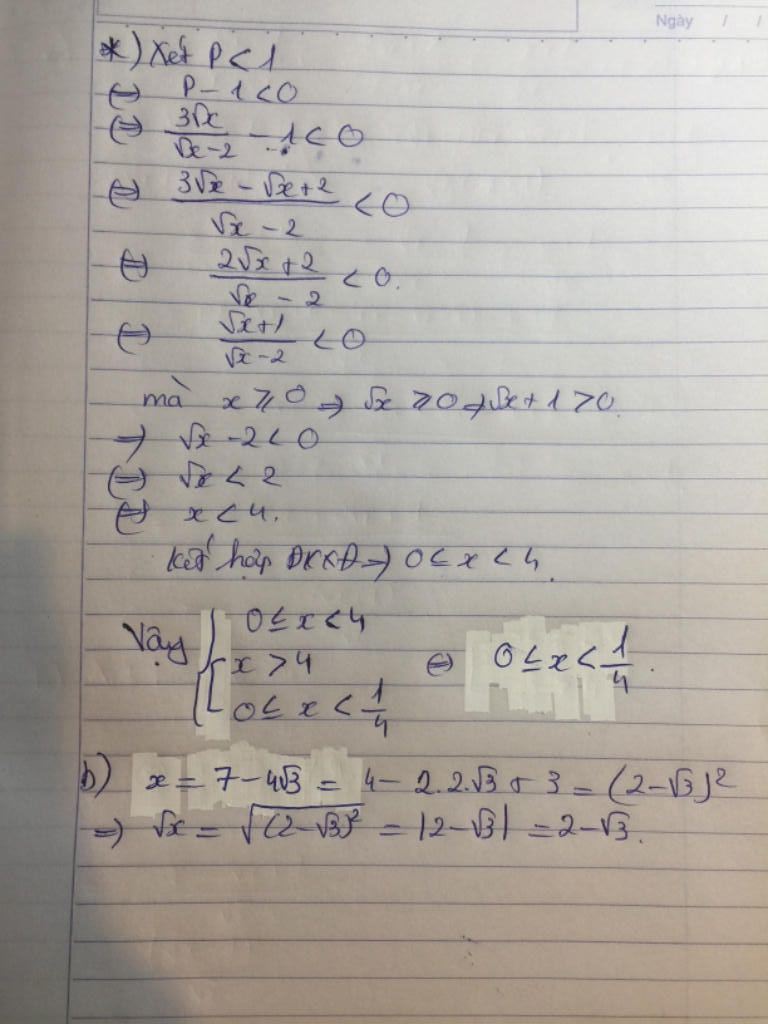 Ngày / /
*) Xét P < 1
⇔ P - 1 < 0
⇔ 3√x / (√x - 2) - 1 < 0
⇔ (3√x - √x + 2) / (√x - 2) < 0
⇔ (2√x + 2) / (√x - 2) < 0.
⇔ (√x + 1) / (√x - 2) < 0
mà x ⩾ 0 ⇒ √x ⩾ 0 ⇒ √x + 1 > 0.
⇒ √x - 2 < 0
⇔ √x < 2
⇔ x < 4.
Kết hợp ĐKXĐ ⇒ 0 ≤ x < 4.
Vậy { 0 ≤ x < 4
[ x > 4 ⇔ 0 ≤ x < 1/4.
0 ≤ x < 1/4
b) x = 7 - 4√3 = 4 - 2.2.√3 + 3 = (2 - √3)²
⇒ √x = √(2 - √3)² = |2 - √3| = 2 - √3.